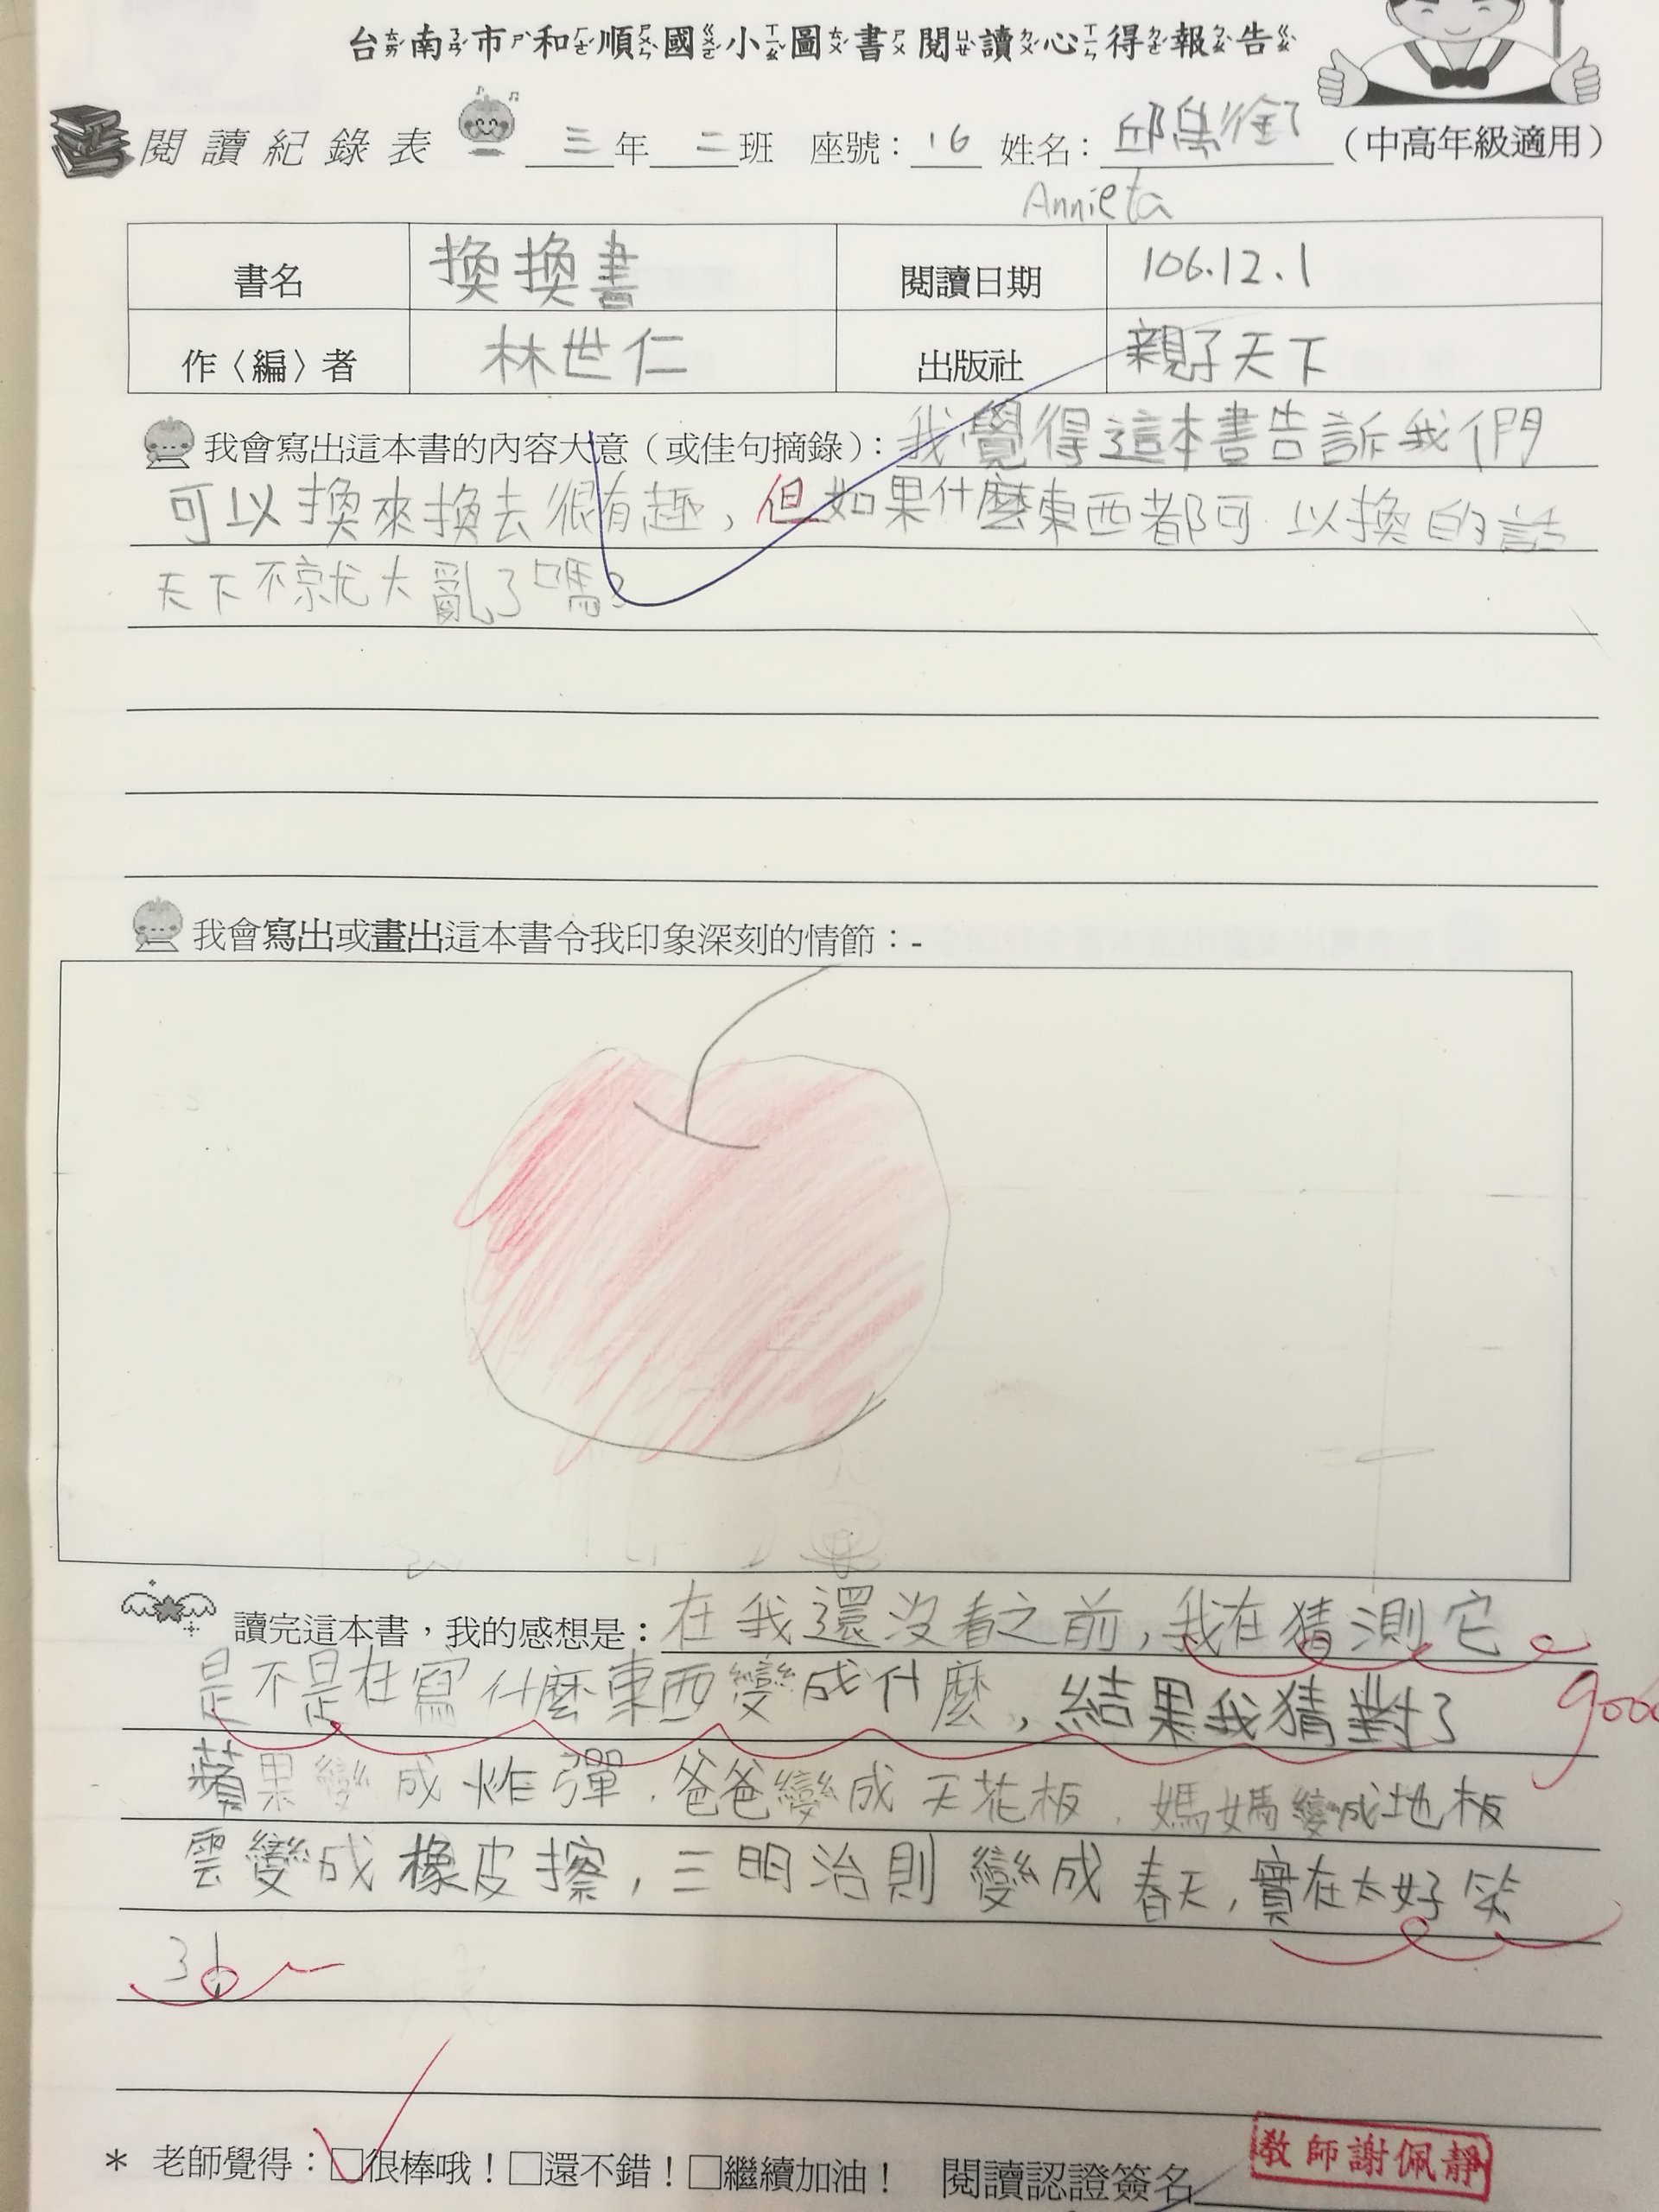 台南市和順國小圖書閱讀心得報告
閱讀紀錄表 三年二班 座號：16 姓名：邱 （中高年級適用）
Annieta
書名 換換書 閱讀日期 106.12.1
作〈編〉者 林世仁 出版社 親子天下
我會寫出這本書的內容大意（或佳句摘錄）：我覺得這本書告訴我們
可以換來換去很有趣，但如果什麼東西都可以換的話
天下不就大亂了嗎？
我會寫出或畫出這本書令我印象深刻的情節：-
讀完這本書，我的感想是：在我還沒看之前，我在猜測它
是不是在寫什麼東西變成什麼，結果我猜對了
good
蘋果變成炸彈，爸爸變成天花板，媽媽變成地板
雲變成橡皮擦，三明治則變成春天，實在太好笑
了！
* 老師覺得：□很棒哦！□還不錯！□繼續加油！ 閱讀認證簽名
教師謝佩靜